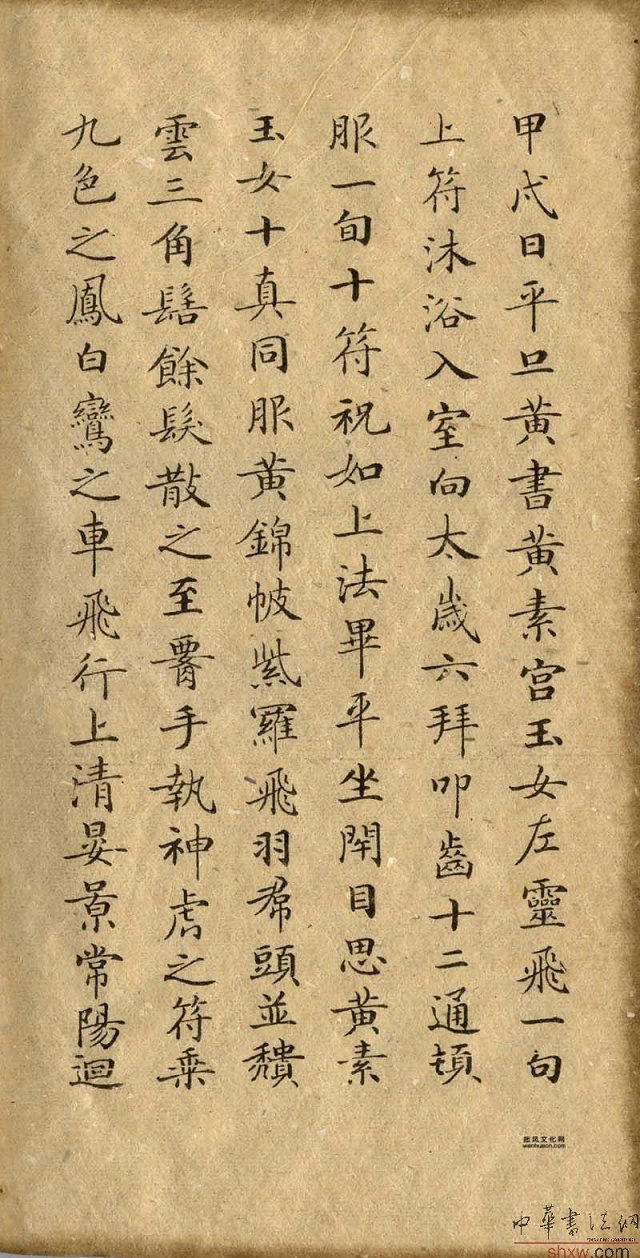 甲戌日平旦黄書黄素宫玉女左靈飛一旬
上符沐浴入室向太歲六拜叩齒十二通頓
服一旬十符祝如上法畢平坐閇目思黄素
玉女十真同服黄錦帔紫羅飛羽帬頭並穨
雲三角髻餘髮散之至脣手執神虎之符乗
九色之鳳白鸞之車飛行上清晏景常陽迴
wenhuacn.com
中華書法網
shxw.com